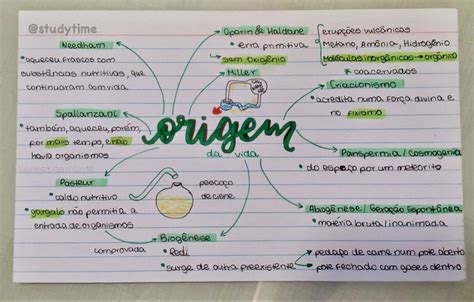 @studytime
Needham
• aqueceu frascos com
substâncias nutritivas, que
continuaram com vida
Spallanzani
• também, aqueceu, porém,
por mais tempo, e não
havia organismos
Pasteur
• caldo nutritivo
• gargalo não permitia a
entrada de organismos
pescoço
de cisne
Biogênese
comprovada
• Redi
• surge de outra preexistente
• pedaço de carne num pote aberto
• pote fechado com gases dentro
origem
da vida
Oparin & Haldane
• erra primitiva
sem oxigênio
erupções vulcânicas
Metano, Amônia, Hidrogênio
Moléculas inorgânicas → orgânica
coacervados
Miller
Criacionismo
• acredita numa força divina e
no fixismo
Panspermia / Cosmogenia
• do espaço por um meteorito
Abiogênese / Geração Espontânea
• matéria bruta / inanimada